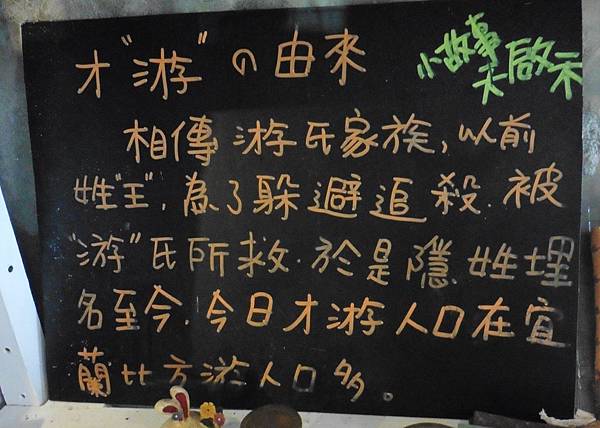 才"游"の由來
小故事
大啟示
相傳游氏家族,以前
姓"王",為了躲避追殺.被
"游"氏所救.於是隱姓埋
名至今.今日才游人口在宜
蘭比方游人口多。